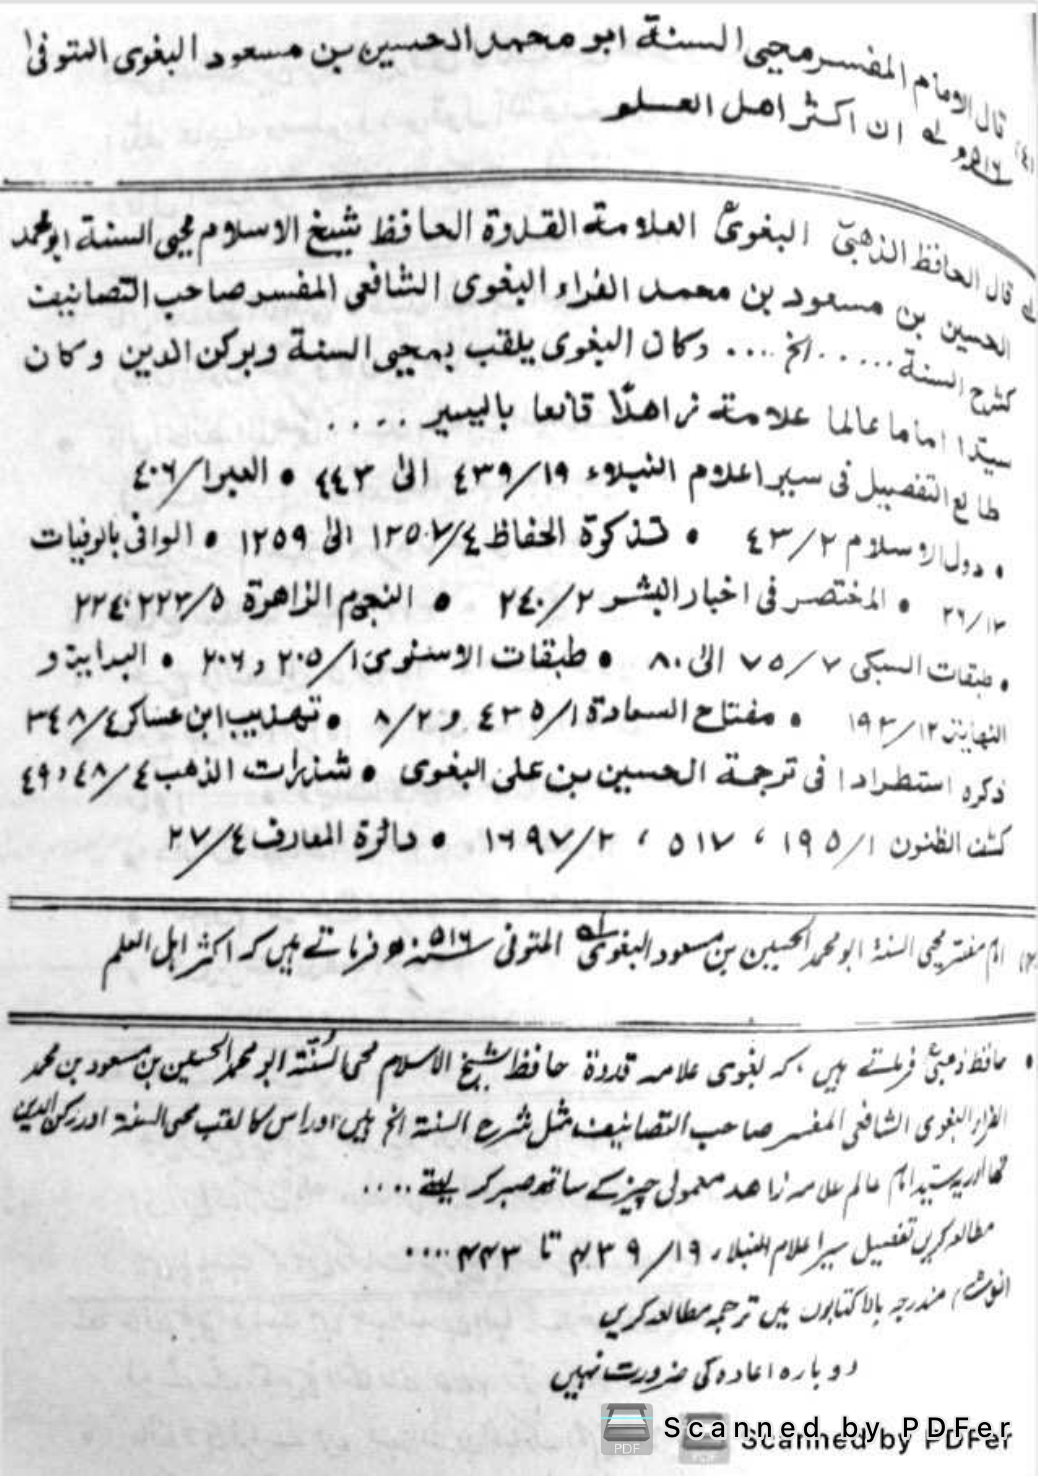 (٤) قال الامام المفسر محيى السنة ابو محمد الحسين بن مسعود البغوى المتوفى
٥١٦ھ له ان اكثر اهل العلم
له قال الحافظ الذهبىؒ البغوىؒ العلامة القدوة الحافظ شيخ الاسلام محيى السنة ابو محمد
الحسين بن مسعود بن محمد الفراء البغوى الشافعى المفسر صاحب التصانيف
كشرح السنة ..... الخ .... وكان البغوى يلقب بمحيى السنة وبركن الدين وكان
سيّدا اماما عالما علامة زاهدًا قانعا باليسير ....
طالع التفصيل فى سير اعلام النبلاء ١٩/٤٣٩ الىٰ ٤٤٣ • العبر ١/٤٠٦
• دول الاسلام ٢/٤٣ • تذكرة الحفاظ ٤/١٢٥٧ الىٰ ١٢٥٩ • الوافى بالوفيات
١٣/٢٦ • المختصر فى اخبار البشر ٢/٢٤٠ • النجوم الزاهرة ٥/٢٢٣، ٢٢٤
• طبقات السبكى ٧/٧٥ الىٰ ٨٠ • طبقات الاسنوى ١/٢٠٥ و ٢٠٦ • البداية و
النهاية ١٢/١٩٣ • مفتاح السعادة ١/٤٣٥ و ٢/٨ • تهذيب ابن عساكر ٤/٣٤٨
ذكره استطرادا فى ترجمة الحسين بن على البغوى • شذرات الذهب ٤/٤٨، ٤٩
كشف الظنون ١/١٩٥ ، ٥١٧ ، ٢/١٦٩٧ • دائرة المعارف ٤/٢٧
امام مفسر محی السنۃ ابو محمد الحسین بن مسعود البغوی المتوفی ٥١٦ھ فرماتے ہیں کہ اکثر اہل العلم
• حافظ ذھبیؒ فرماتے ہیں کہ بغوی علامہ قدوۃ حافظ شیخ الاسلام محی السنّۃ ابو محمد الحسین بن مسعود بن محمد
الفراء البغوی الشافعی المفسر صاحب التصانیف مثل شرح السنۃ الخ ہیں اور اس کا لقب محی السنۃ اور رکن الدین
تھا اور یہ سید امام عالم علامہ زاھد معمولی چیز کے ساتھ صبر کر لیتے ....
مطالعہ کریں تفصیل سیر اعلام النبلاء ١٩/٤٣٩ تا ٤٤٣ ....
مندرجہ بالا کتابوں میں ترجمہ مطالعہ کریں
دوبارہ اعادہ کی ضرورت نہیں
Scanned by PDFer
Scanned by PDFer